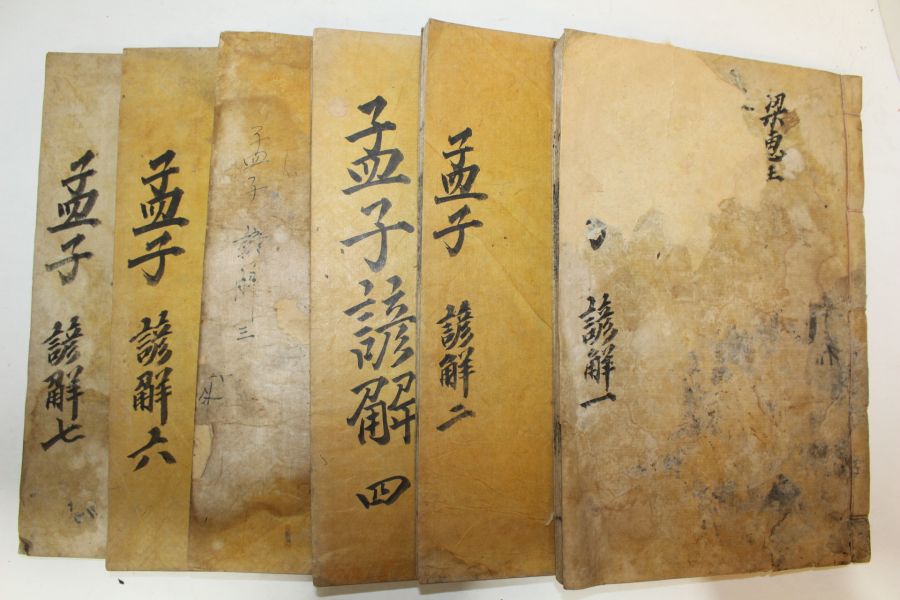 梁惠王
諺解一
孟子 諺解二
孟子諺解 四
孟子 諺解 三
孟子 諺解六
孟子 諺解七